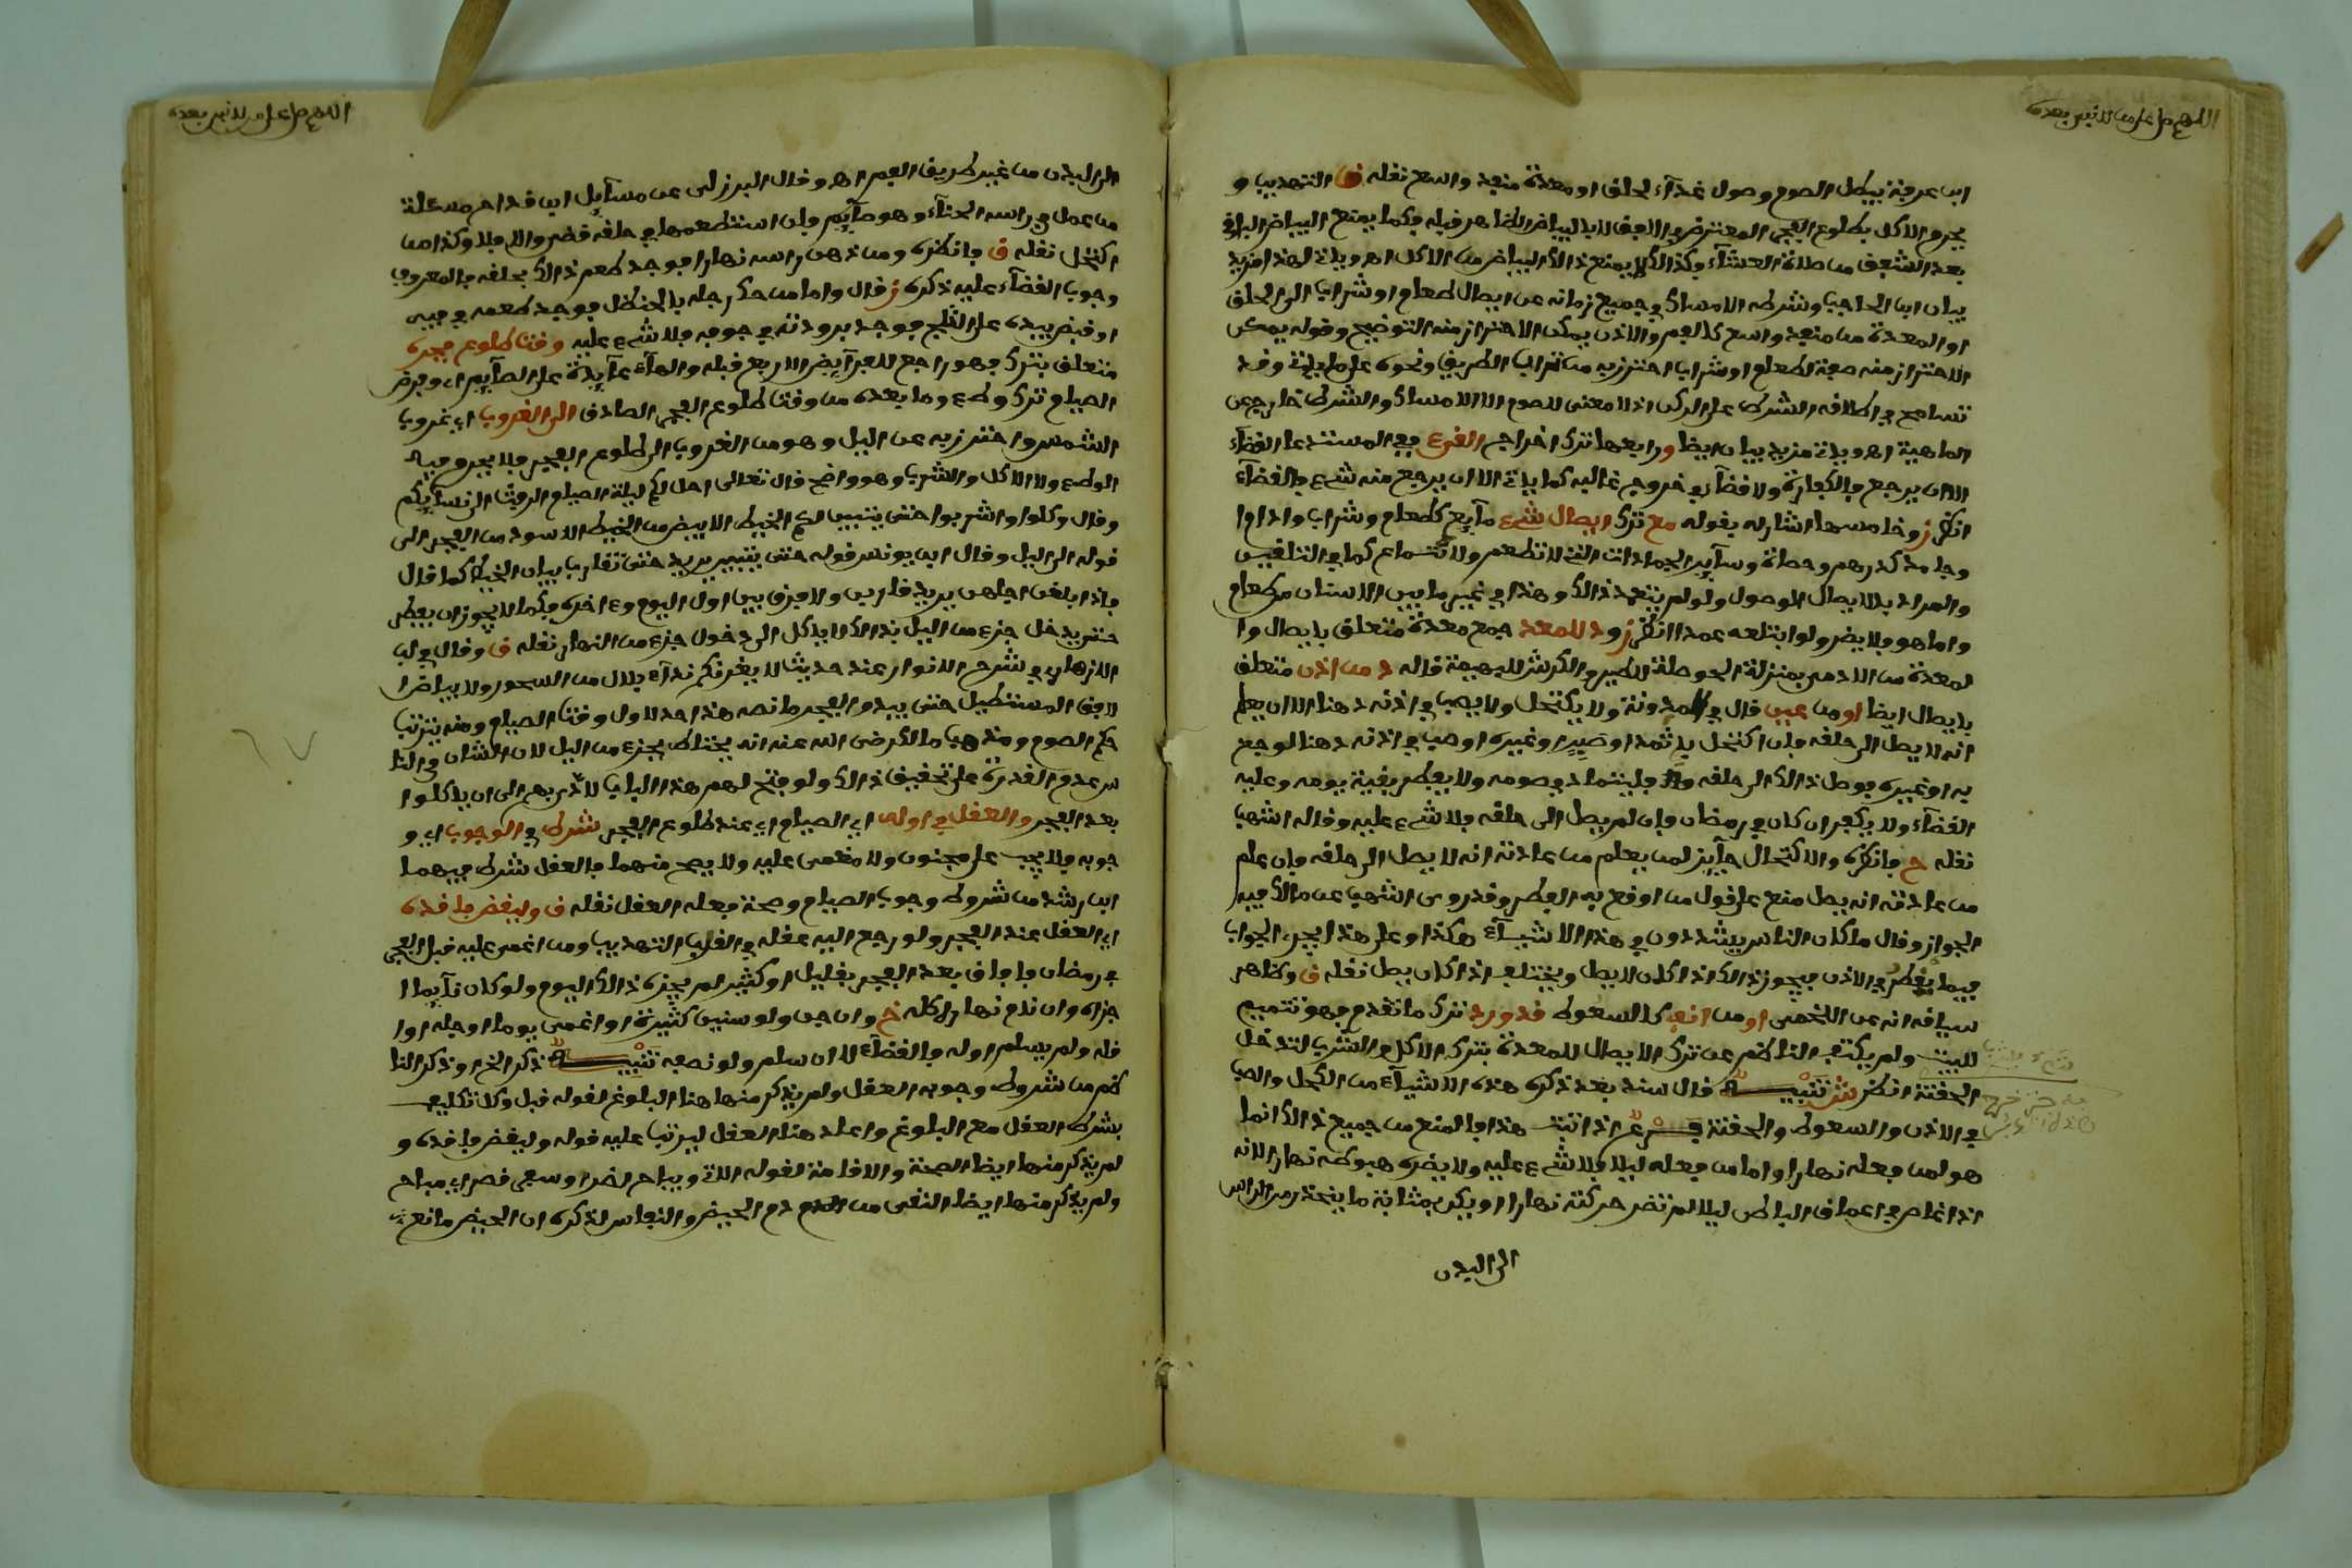 اللهم صل على من لا نبي بعده
ابن عرفة يبطل الصوم وصول غذاء لحلق او معدة من منفذ واسع نقله ق التهذيب و
يحرم الاكل بطلوع الفجر المعترض في الافق لا بالبياض الظاهر قبله فكما يمنع البياض الباقي
بعد الشفق من صلاة العشاء فكذالك لا يمنع ذالك البياض من الاكل اهـ وياتي لهذا مزيد
بيان ابن الحاجب وشرطه الامساك في جميع زمانه عن ايصال طعام او شراب الى الحلق
او المعدة من منفذ واسع كالفم والاذن يمكن الاحتراز منه التوضيح وقوله يمكن
الاحتراز منه صفة لطعام او شراب احترز به من تراب الطريق ونحوه على ما ياتي وقد
تسامح في اطلاقه الشرط على الركن اذ لا معنى للصوم الا الامساك والشرط خارج عن
الماهية اهـ وياتي مزيد بيان ايضا ورابعها ترك اخراج القيء ففي المستدعا القضاء
الا ان يرجع فالكفارة ولا قضاء في خروج غالبه كما ياتي الا ان يرجع منه شيء فالقضاء
انظر ز وخامسها اشار له بقوله مع ترك ايصال شيء مايع كطعام وشراب واداوا
وجامد كدرهم وحصاة وساير الجمادات التي لا تطعم ولا تنماع كما في التلقين
والمراد بالايصال الوصول ولو لم يتعمد ذالك وهذا في غير ما بين الاسنان من طعام
واما هو فلا يضر ولو ابتلعه عمدا انظر ز و د للمعد جمع معدة متعلق بايصال وا
لمعدة من الادمي بمنزلة الحوصلة للطير والكرش للبهيمة قاله د من اذن متعلق
بايصال ايضا او من عين قال في المدونة ولا يكتحل ولا يصب في اذنه دهنا الا ان يعلم
انه لا يصل الى حلقه فان اكتحل باثمد او صبر او غيره او صب في اذنه دهنا لوجع
به او غيره فوصل ذالك الى حلقه فليتماد في صومه ولا يفطر بقية يومه وعليه
القضاء ولا يكفر ان كان في رمضان فان لم يصل الى حلقه فلا شيء عليه وقاله اشهب
نقله ح فانظره والاكتحال جايز لمن يعلم من عادته انه لا يصل الى حلقه فان علم
من عادته انه يصل منع على قول من اوقع به الفطر وقد روى اشهب عن مالك فيه
الجواز وقال ما كان الناس يشددون في هذا الاشياء هكذا وعلى هذا يجري الجواب
فيما يقطر في الاذن فيجوز ذالك اذا كان لا يصل ويختلف اذا كان يصل نقله ق وظاهر
سياقه انه عن اللخمي او من انف كالسعوط قد ورد ترك ما تقدم فهو تتميم
للبيت ولم يكتف الناظم عن ترك الايصال للمعدة بترك الاكل والشرب لتدخل
الحقنة انظر ش تنبيه قال سند بعد ذكره هذه الاشياء من الكحل والصب
في الاذن والسعوط والحقنة فرع اذا ثبت هذا فالمنع من جميع ذالك انما
هو لمن فعله نهارا واما من فعله ليلا فلا شيء عليه ولا يضره هبوطه نهارا لانه
اذا غاص في اعماق الباطن ليلا لم تضر حركته نهارا او يكن بمثابة ما ينحدر من الراس
الى البدن
اللهم صل على من لا نبي بعده
الى البدن من غير طريق الفم اهـ وقال البرزلي عن مسايل ابن قداح مسئلة
من عمل في راسه الحناء وهو صايم فان استطعمها في حلقه قضى والا فلا وكذا من
اكتحل نقله ق فانظره ومن دهن راسه نهارا فوجد طعم ذالك بحلقه فالمعروف
وجوب القضاء عليه ذكره ز قال واما من حك رجله بالحنظل فوجد طعمه في فيه
او قبض بيده على الثلج فوجد برودته في جوفه فلا شيء عليه وقت طلوع فجره
متعلق بترك فهو راجع للفرايض الاربع قبله والهاء عايدة على الصايم اي وفرض
الصيام ترك وطء وما بعده من وقت طلوع الفجر الصادق الى الغروب اي غروب
الشمس واحترز به عن اليل وهو من الغروب الى طلوع الفجر فلا يحرم فيه
الوطء ولا الاكل والشرب وهو واضح قال تعالى احل لكم ليلة الصيام الرفث الى نسايكم
وقال وكلوا واشربوا حتى يتبين لكم الخيط الابيض من الخيط الاسود من الفجر الى
قوله الى اليل وقال ابن يونس قوله حتى يتبين يريد حتى تقارب بيان الخيط كما قال
فاذا بلغن اجلهن يريد قاربن ولا فرق بين اول اليوم وءاخره فكما لا يجوز ان يفطر
حتى يدخل جزء من اليل بذالك لا ياكل الى دخول جزء من النهار نقله ق وقال في لب
الازهار في شرح الانوار عند حديث لا يغرنكم نداء بلال من السحور ولا بياض ا
لافق المستطيل حتى يبدو الفجر ما نصه هذا حد لاول وقت الصيام ومنه يترتب
حكم الصوم ومذهب مالك رضي الله عنه انه يختلط بجزء من اليل لان الشان في النا
س عدم القدرة على تحقيق ذالك ولو فتح لهم هذا الباب لادى بهم الى ان ياكلوا
بعد الفجر والعقل في اوله اي الصيام اي عند طلوع الفجر شرط في الوجوب اي و
جوبه فلا يجب على مجنون ولا مغمى عليه ولا يصح منهما فالعقل شرط فيهما
ابن رشد من شروط وجوب الصيام وصحة فعله العقل نقله ق وليقض فاقده
اي العقل عند الفجر ولو رجع اليه عقله في القرب التهذيب ومن اغمي عليه قبل الفجر
في رمضان فافاق بعد الفجر بقليل او كثير لم يجزه ذالك اليوم ولو كان نايما ا
جزاه وان نام نهاره كله خ وان جن ولو سنين كثيرة او اغمي يوما او جله او ا
قله ولم يسلم اوله فالقضاء لا ان سلم ولو نصفه تنبيه ذكر الخ او ذكر النا
ظم من شروط وجوبه العقل ولم يذكر منها هنا البلوغ لقوله قبل وكل تكليف
بشرط العقل مع البلوغ واعاد هنا العقل ليرتب عليه قوله وليقض فاقده و
لم يذكر منها ايضا الصحة والاقامة لقوله الاتي ويباح لضر او سفر قصر اي مباح
ولم يذكر منها ايضا النقى من دم الحيض والنفاس لذكره ان الحيض مانع